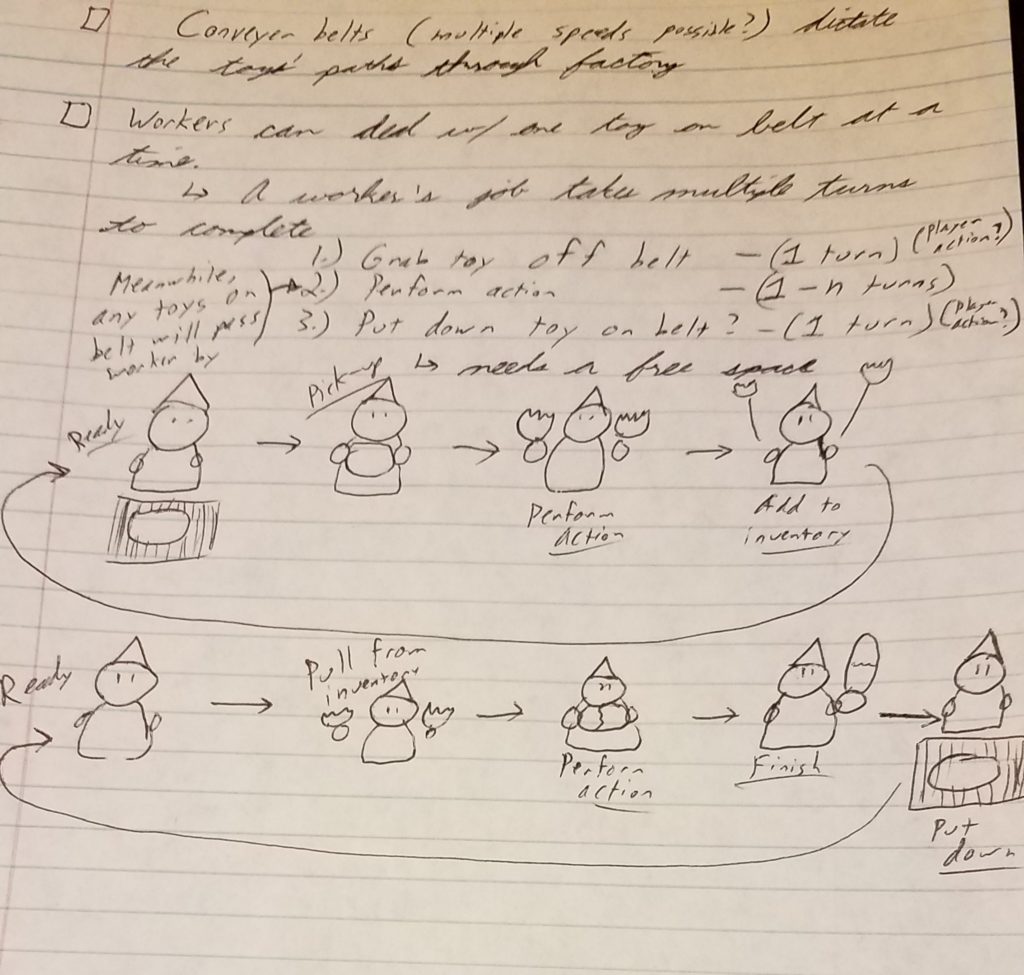 Conveyer belts (multiple speeds possible?) dictate
the toys' paths through factory
Workers can deal w/ one toy on belt at a
time.
↳ A worker's job takes multiple turns
to complete
1.) Grab toy off belt - (1 turn) (Player action?)
2.) Perform action - (1-n turns)
3.) Put down toy on belt? - (1 turn) (Player action?)
↳ needs a free space
Meanwhile,
any toys on
belt will pass
worker by
Ready
Pick-up
Perform
action
Add to
inventory
Ready
Pull from
inventory
Perform
action
Finish
Put
down